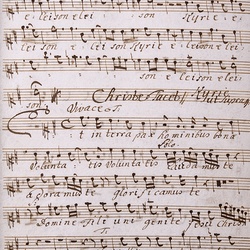 e leison e lei son Kyrie e
lei son e lei son Kyrie e leison e lei
son e leison e lei
son Christe Tacet Kyrie
Vivace T.
t in terra pax hominibus bonæ
Solo
voluntatis voluntatis
adoramus te glorificamus te
Domine Fili unigenite